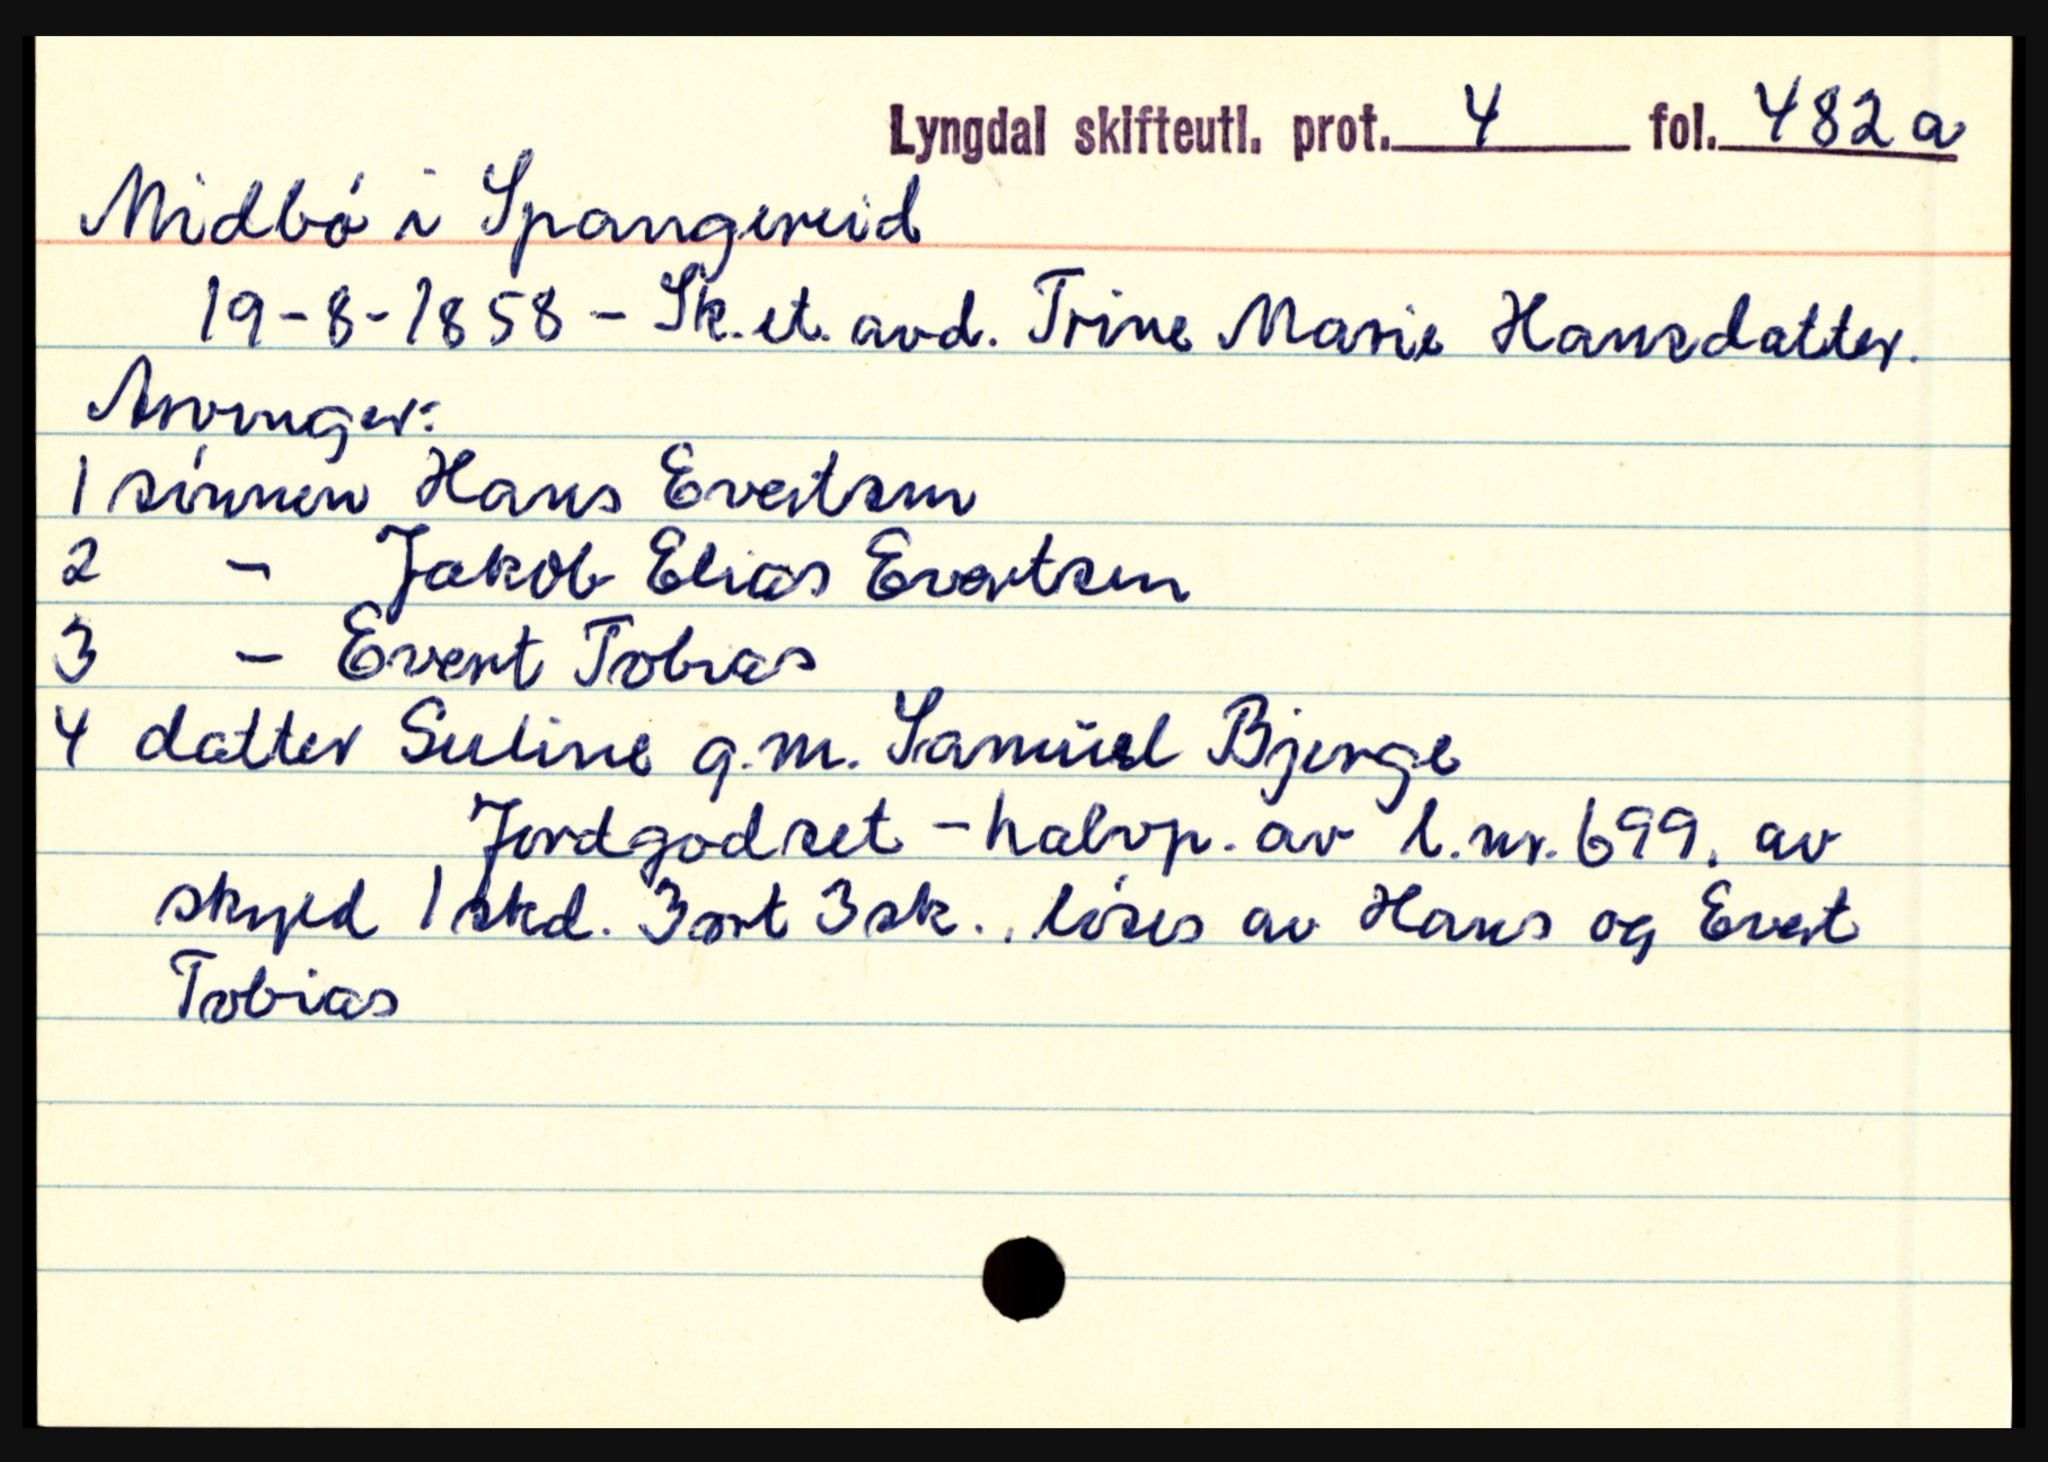 Lyngdal skifteutl. prot. 4 fol. 482a
Midbó i Spangereid
19-8-1858 - Sk. et. avd. Trine Marie Hansdatter.
Arvinger:
1 sónnen Hans Evertsen
2 - Jakob Elias Evertsen
3 - Evert Tobias
4 datter Suline g.m. Samuel Bjerge
Jordgodset - halvp. av l.nr. 699. av
skyld 1 skd. 3 ort 3 sk.. lóses av Hans og Evert
Tobias